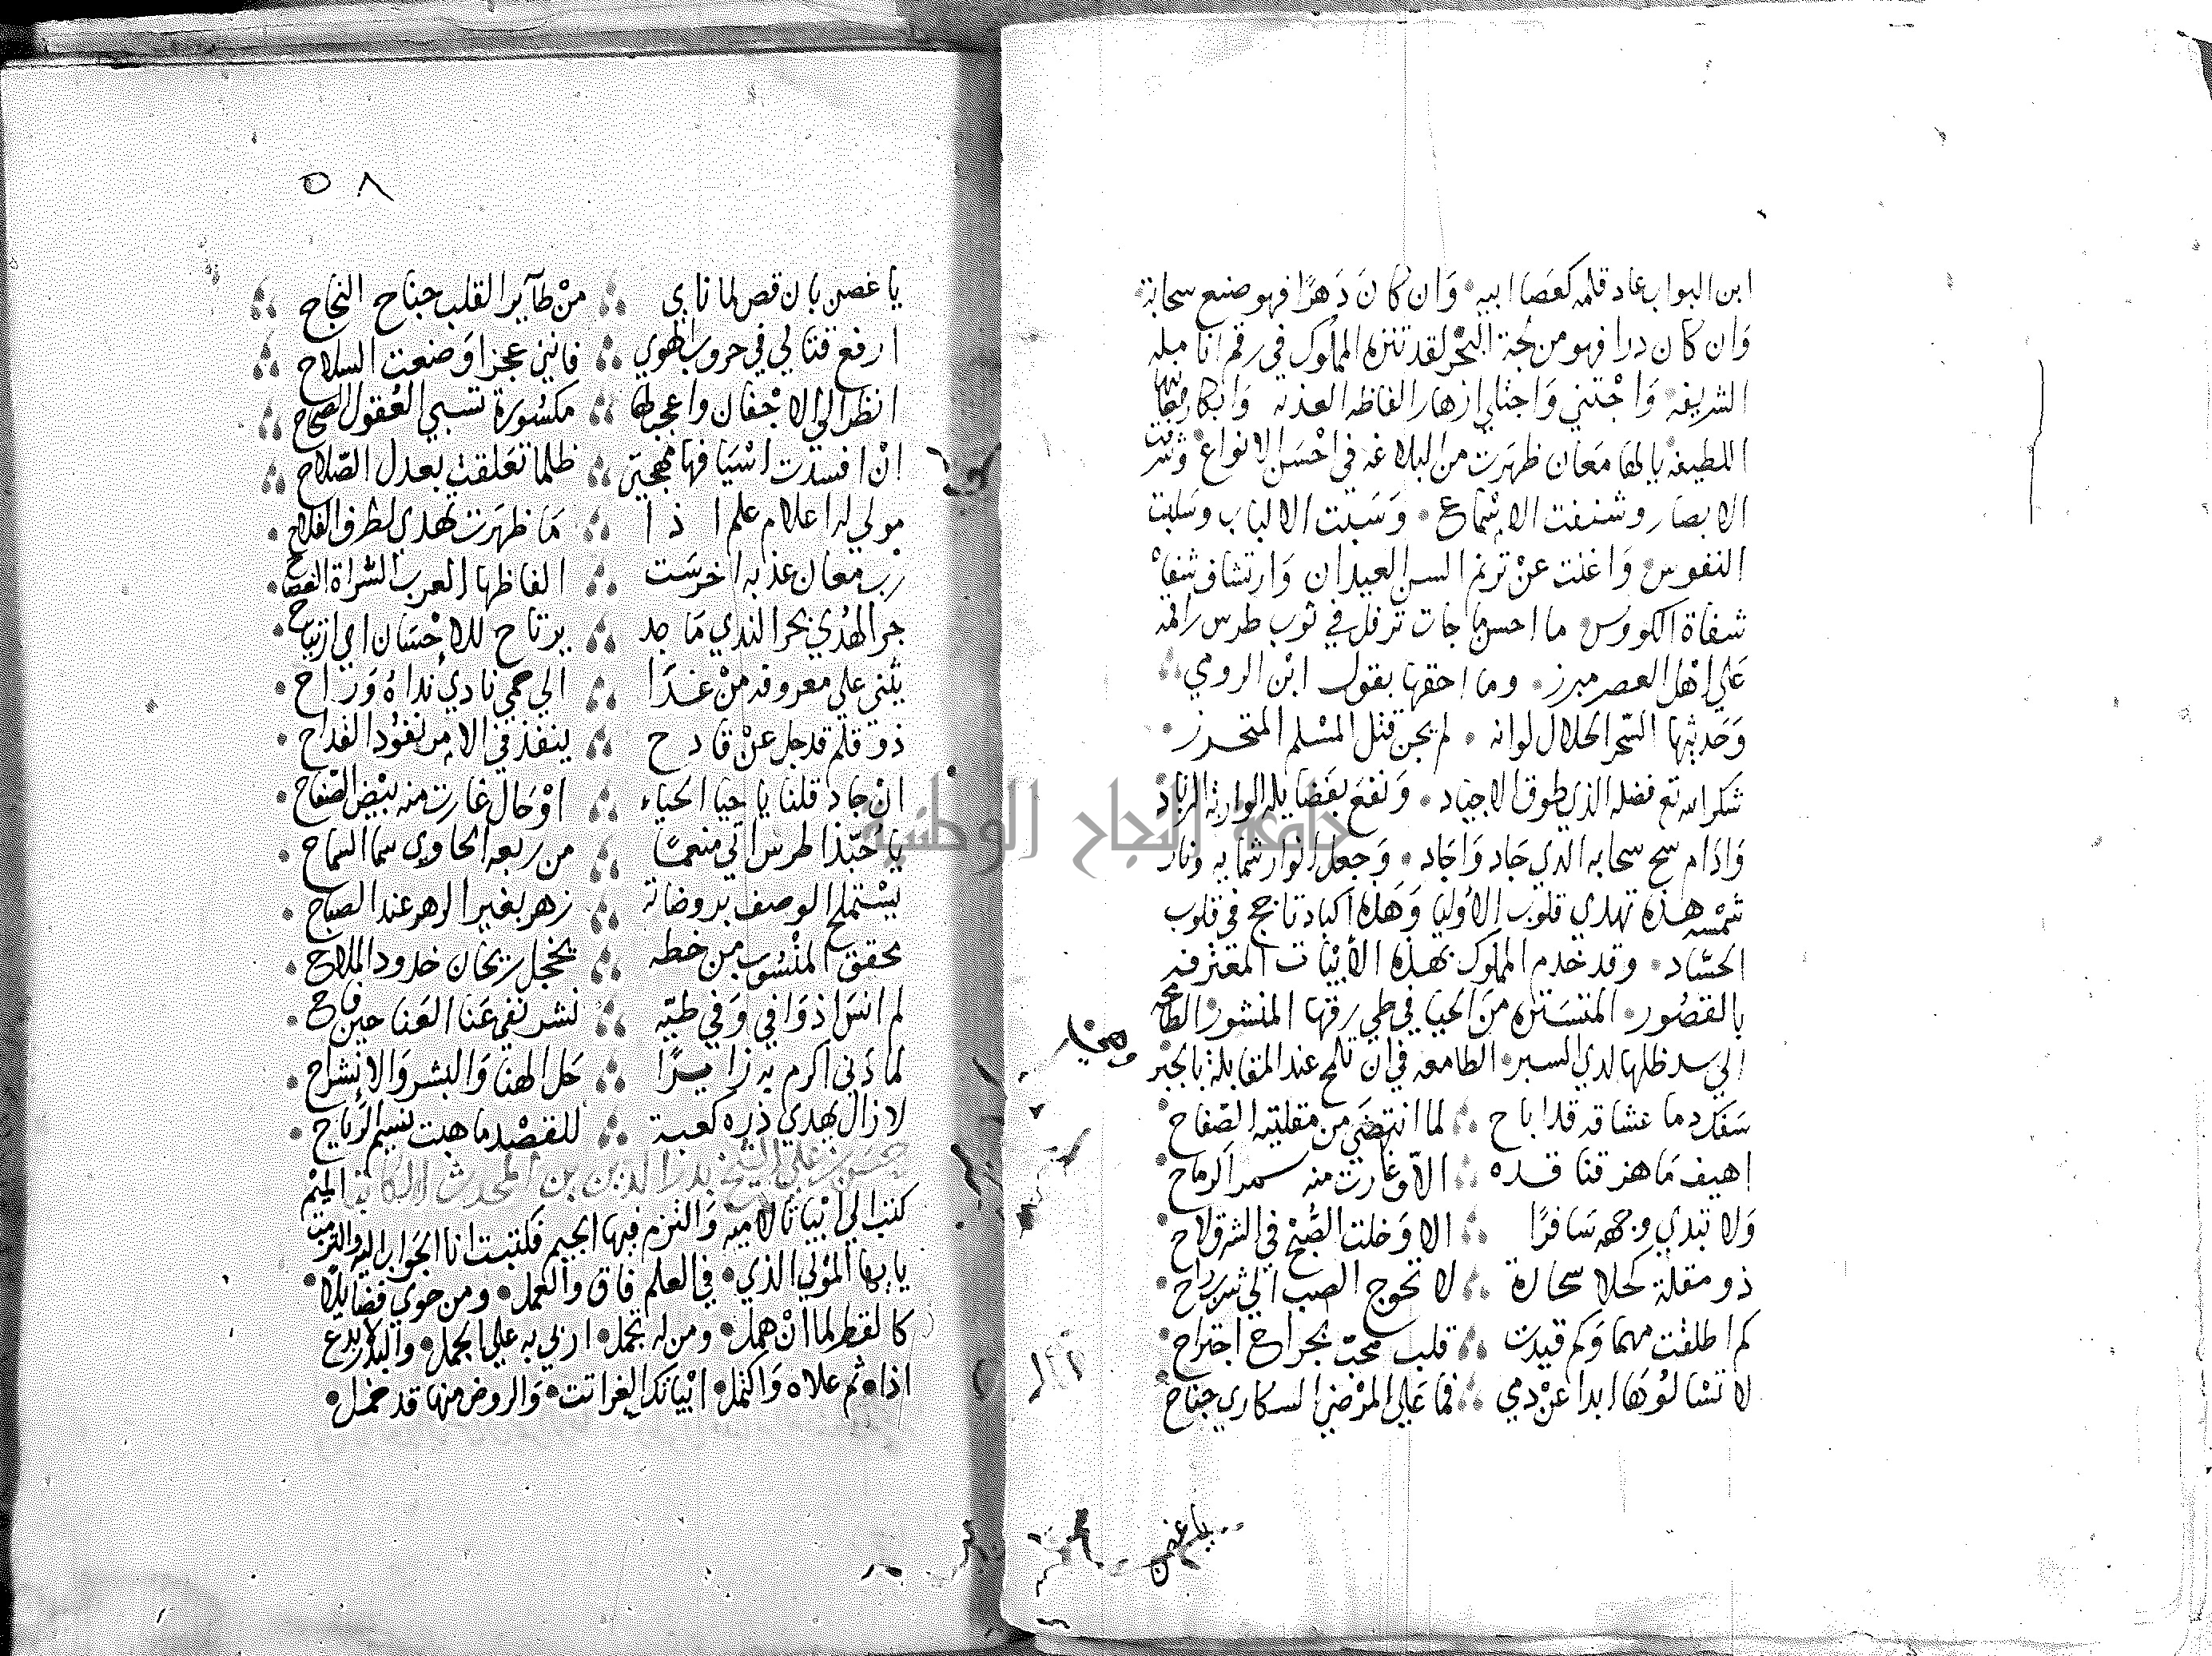 ابن البواب عاد قلمه كعصا ابيه وان كان دهرا فهو صنع سحابة
وان كان درا فهو من لجة البحر لقد تنزه المملوك في رقم انامله
الشريفه واجتني واجتلي ازهار الفاظه العذبه وابكار معانيها
اللطيفه يا لها معان ظهرت من البلاغه في احسن الانواع وشرفت
الابصار وشنفت الاسماع وسبت الالباب وسلبت
النفوس واغنت عن ترنم السن العيدان وارتشاف شفاه
شفاة الكووس ما احسن ما جات ترفل في ثوب طرس راقمه
علي اهل العصر مبرز وما احقها بقول ابن الرومي
وحديثها السحر الحلال لو انه لم يجن قتل المسلم المتحرز
شكر الله تع فضله الذي طوق الاجياد ونفع بفضايله الوارية الزناد
وادام سح سحابه الذي جاد واجاد وجعل انوار سمايه ونار
شمسه هذه تهدي قلوب الاوليا وهذه اكباد تاجج في قلوب
الحساد وقد خدم المملوك بهذه الأبيات المعترفه
بالقصور المتستره من الحيا في طي رقها المنشور الطامحه
الي سد ظلها لدي السير الطامعه في ان تلمح عند المقابلة بالجبر
سفك دما عشاقه قد اباح لما انتضي من مقلتيه الصفاح
اهيف ما هز قنا قده الا وغارت منه سمر الرماح
ولا تبدي وجهه سافرا الا وخلت الصبح في الشرق لاح
ذو مقلة كحلا سحارة لا تحوج الصب الي شرب راح
كم اطلقت مهما وكم قيدت قلب محب بجراح اجتراح
لا تسالوها ابدا عن دمي فما علي المرضي السكاري جناح
يا غصن
٥٨
يا غصن بان قص لما ناي من طآير القلب جناح النجاح
ارفع قتالي في حروب الهوي فانني عجزا وضعت السلاح
انظر الي الاجفان واعجب لها مكسورة تسبي العقول الصحاح
ان افسدت اسيافها مهجتي ظلما تعلقت بعدل الصلاح
مولي له اعلام علم اذا ما ظهرت تهدي لطرق الفلاح
رب معان عذبه اخرست الفاظها العرب السراة الفصاح
حبر الهدي بحر الندي ماجد يرتاح للاحسان اي ارتياح
يثني علي معروفه من غدا الي حمي نادي نداه وراح
ذو قلم قد جل عن قادح ينفذ في الامر نفوذ القداح
ان جاد قلنا يا حيا الحياء او حال غارت منه بيض الصفاح
يا حبذا طرس اتي منعما من ربعه الحاوي سما السماح
يستملح الوصف بروضاته زهر بغير الزهر عند الصباح
محقق المنسوب من خطه يخجل ريحان خدود الملاح
لم انس اذ وافي وفي طيه نشر نفي عنا العنا حين فاح
لما دني اكرم به زايرا حل الهنا والبشر والانشراح
لا زال يهدي ذره كعبة للقصد ما هبت نسيم الرياح
حسن بن علي الشيخ بدر الدين بن المحدث الكاتب
كتب الي ابياتا لاميه والتزم فيها الجيم فكتبت انا الجواب اليه والتزمت الميم
يا ايها المولي الذي في العلم فاق والعمل ومن حوي فضايلا
كالقطر لما ان همل ومن له تجمل اربي به علي الجمل والبدر يدع
اذا تم علاه واكتمل ابياتك الغر اتت والروض منها قد خمل
جامعة النجاح الوطنية